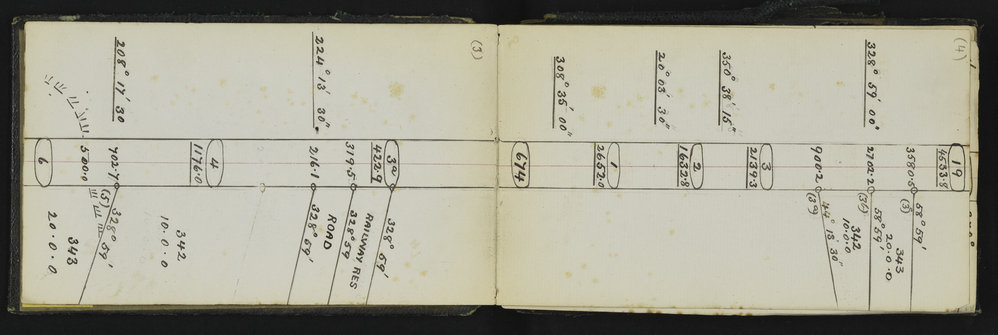 (3)
208° 17' 30
224° 13' 30"
6
5000.0
702.7
(5)
328° 59'
4
1176.0
216.1
328° 59'
ROAD
319.5
328° 59
RAILWAY RES
3a
422.9
328° 69'
343
20.0.0
342
10.0.0
(4)
308° 35' 00"
20° 03' 30"
350° 38' 15"
328° 59' 00"
674
1
2652.0
2
1632.8
3
2139.3
900.2
(39)
44° 13' 30"
2702.2
58° 59'
342
10.0.0
3580.5
(3)
58° 59'
343
20.0.0
19
4533.8